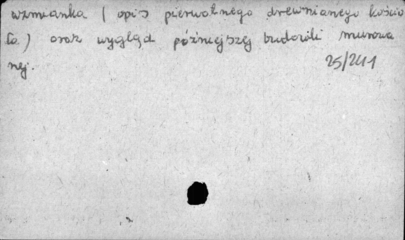 wzmianka ( opis pierwotnego drewnianego kościo
ła ) oraz wygląd późniejszej budowli murowa
nej. 25/241